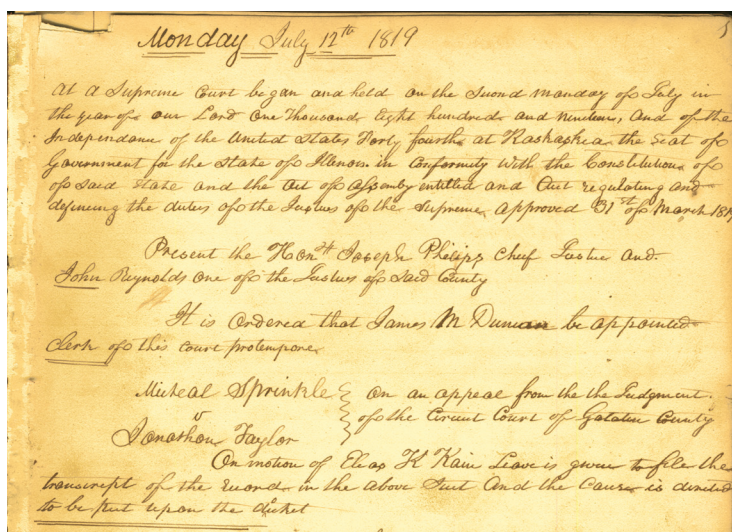 Monday July 12th 1819
At a Supreme Court began and held on the Second Monday of July in
the year of our Lord One Thousand Eight hundred and nineteen, and of the
Independance of the United States Forty fourth at Kaskaskia the Seat of
Government for the State of Illinois in Conformity with the Constitution of
of said State and the Act of Assembly entitled and Act regulating and
defineing the duties of the Justices of the Supreme approved 31st of March 1819
Present the Honl Joseph Philips Cheif Justice and
John Reynolds one of the Justices of said County
It is Ordered that James M Duncan be appointed
Clerk of this Court protempore
Micheal Sprinkle
v
Jonathan Taylor
On an appeal from the the Judgment
of the Circuit Court of Galatin County
On motion of Elias K Kain Leave is given to file the
transcript of the record in the above Suit And the Cause is directed
to be put upon the docket